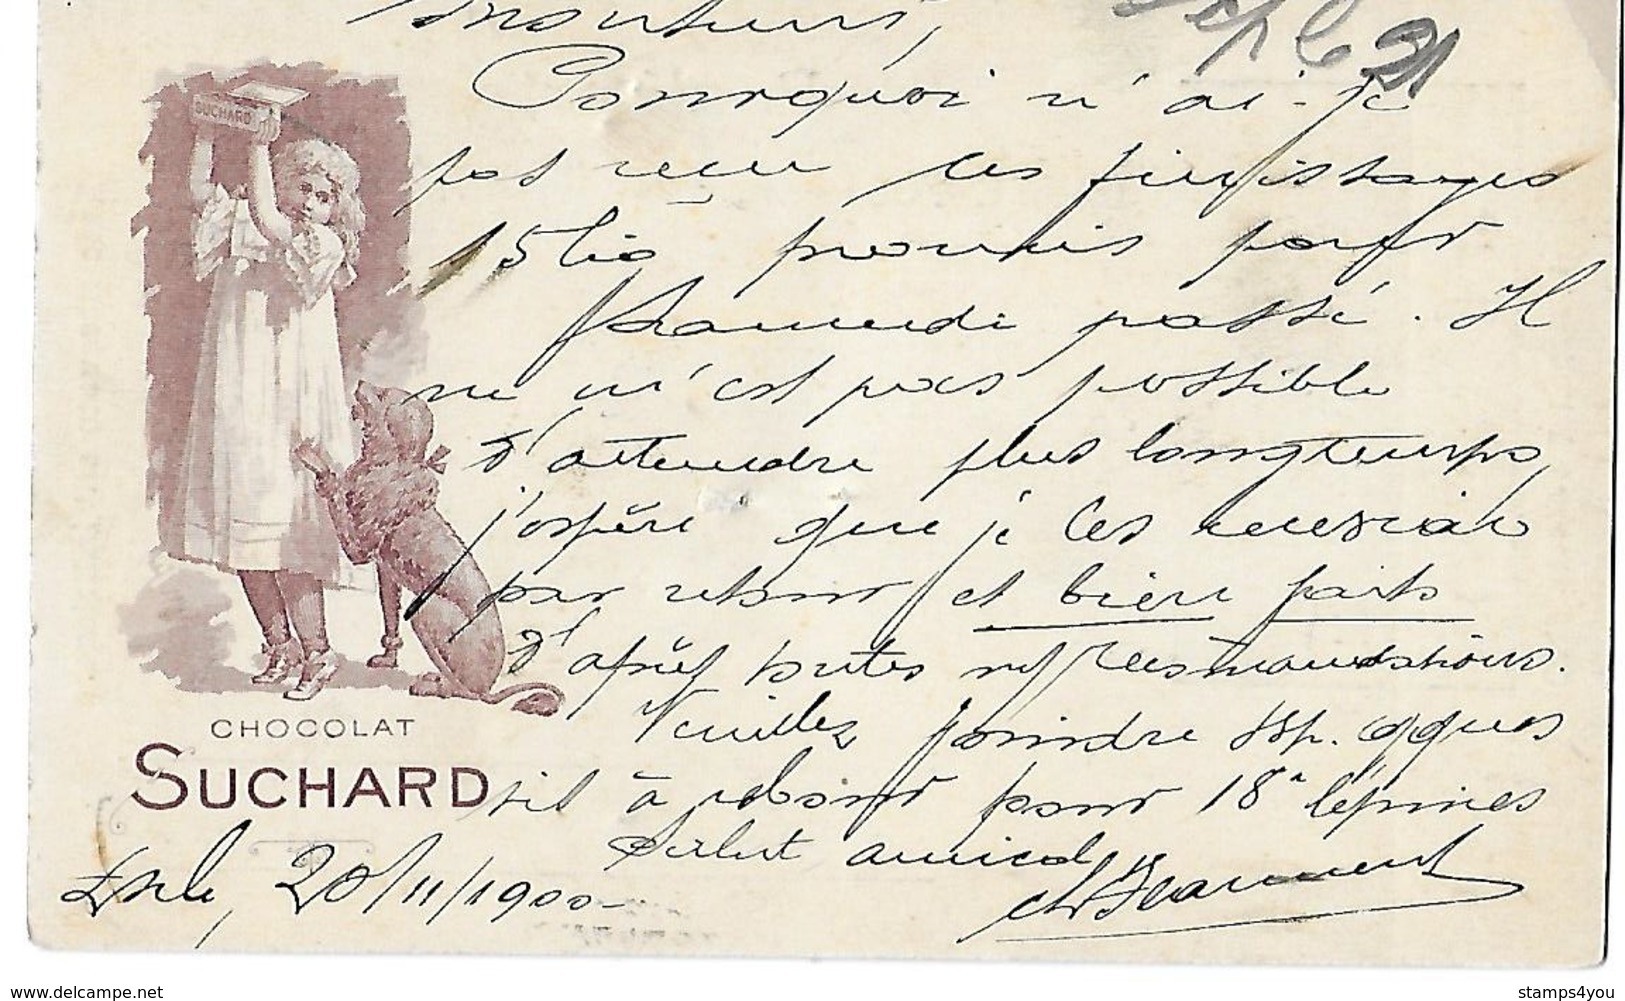 Monsieur,
Pourquoi n'ai-je
pas reçu les finissages
15 lig promis pour
Samedi passé. Il
ne m'est pas possible
d'attendre plus longtemps,
j'espère que je les recevrai
par retour et bien faits
d'après toutes mes recommandations.
Veuillez joindre qques
à retour pour 18"
Salut amical
20/11/1900
SUCHARD
CHOCOLAT
SUCHARD
www.delcampe.net
stamps4you